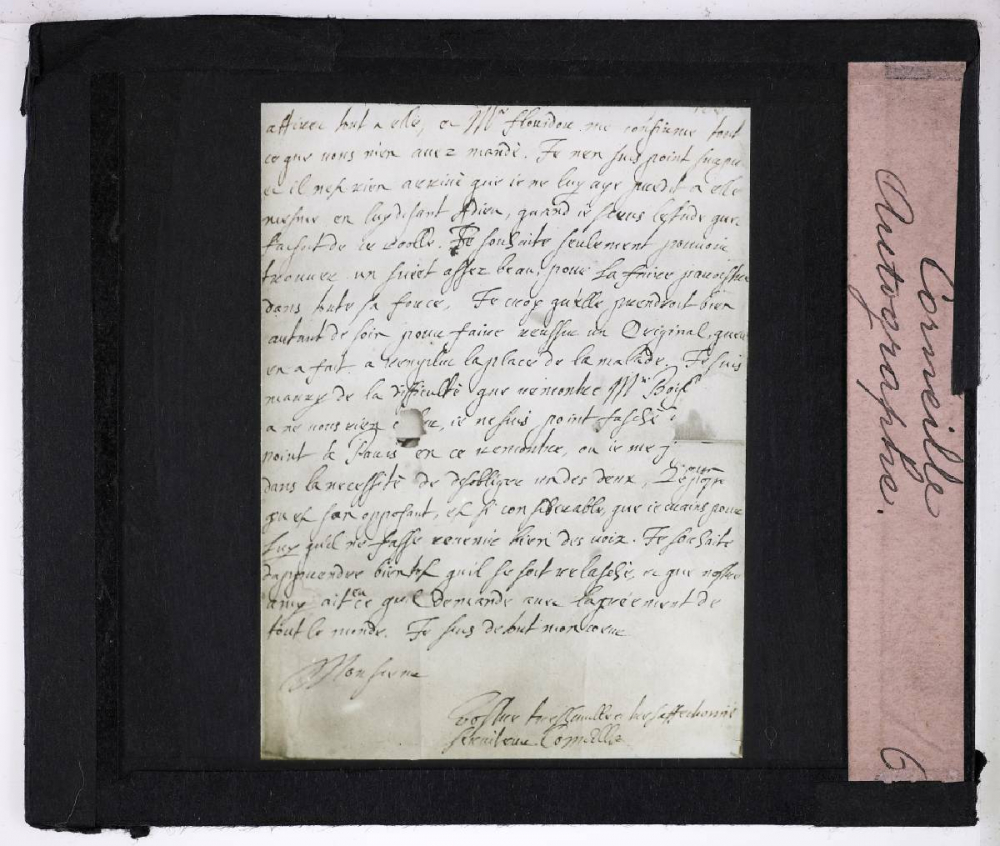 attiree tout a elle, et Mr Floridor me confirme tout
ce que vous m'en avez mandé. Je n'en suis point surpris
et il n'est rien arrivé que je ne luy aye predit a elle
mesme en luy disant Adieu, quand je sceus l'estude que
faisoit de ce roolle. Je souhaite seulement pouvoir
trouver un sujet assez beau, pour la faire paroistre
dans toute sa force. Je croy qu'elle prendroit bien
autant de soin pour faire reussir un Original, que
en a fait a remplir la place de la malade. Je suis
marry de la difficulté que rencontre Mr Bois
a ne suis point fasché
point a Paris en ce rencontre, ou je me
dans la necessité de desobliger un des deux,
qui est son opposant, est si considerable, que je crains pour
luy qu'il ne fasse revenir bien des voix. Je souhaite
d'apprendre bientost qu'il se soit relasché, et que nostre
amy ait eu ce qu'il demande avec l'agreement de
tout le monde. Je suis de tout mon coeur
Monsieur
Vostre tres humble et tres affectionné
serviteur Corneille
Corneille
Autographe.
16